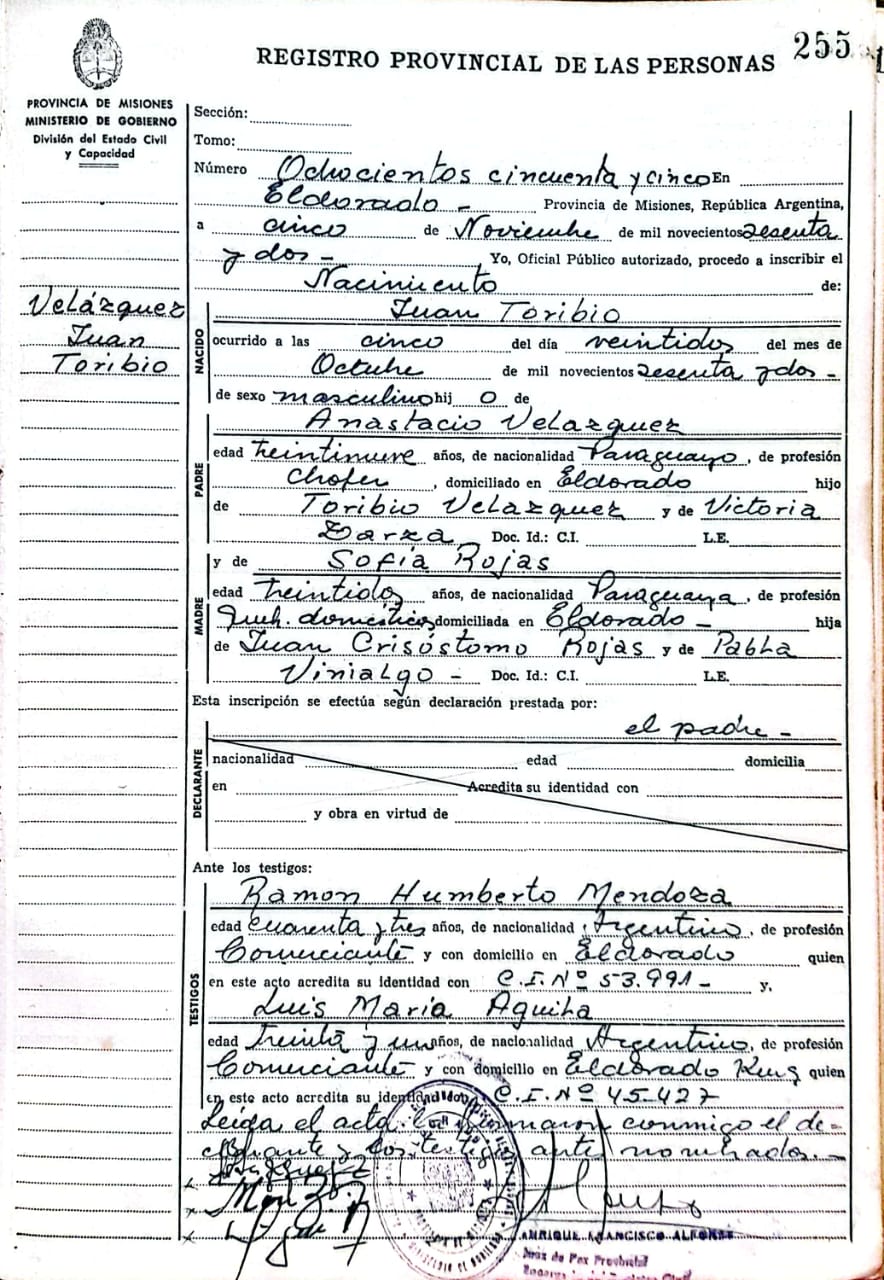 255
REGISTRO PROVINCIAL DE LAS PERSONAS
PROVINCIA DE MISIONES
MINISTERIO DE GOBIERNO
División del Estado Civil
y Capacidad
Velázquez
Juan
Toribio
Sección:
Tomo:
Número Ochocientos cincuenta y cinco En
Eldorado - Provincia de Misiones, República Argentina,
a cinco de Noviembre de mil novecientos sesenta
y dos - Yo, Oficial Público autorizado, procedo a inscribir el
Nacimiento de:
NACIDO
Juan Toribio
ocurrido a las cinco del día veintidos del mes de
Octubre de mil novecientos sesenta y dos -
de sexo masculino hij o de
PADRE
Anastacio Velazquez
edad treintinueve años, de nacionalidad Paraguayo, de profesión
Chofer, domiciliado en Eldorado hijo
de Toribio Velazquez y de Victoria
Zarza Doc. Id.: C.I. L.E.
MADRE
y de Sofía Rojas
edad treintidos años, de nacionalidad Paraguaya, de profesión
Queh. domésticos domiciliada en Eldorado - hija
de Juan Crisóstomo Rojas y de Pabla
Vinialgo - Doc. Id.: C.I. L.E.
Esta inscripción se efectúa según declaración prestada por:
el padre -
DECLARANTE
nacionalidad edad domicilia
en Acredita su identidad con
y obra en virtud de
Ante los testigos:
TESTIGOS
Ramon Humberto Mendoza
edad cuarenta y tres años, de nacionalidad Argentino, de profesión
Comerciante y con domicilio en Eldorado quien
en este acto acredita su identidad con C.I. Nº 53.991 - y,
Luis María Aguila
edad treinta y un años, de nacionalidad Argentino, de profesión
Comerciante y con domicilio en Eldorado quien
en este acto acredita su identidad con C.I. Nº 45.427
Leída el acta la firmaron conmigo el de-
clarante y los testigos antes nombrados. -
ENRIQUE FRANCISCO ALFONSO
Juez de Paz Provincial